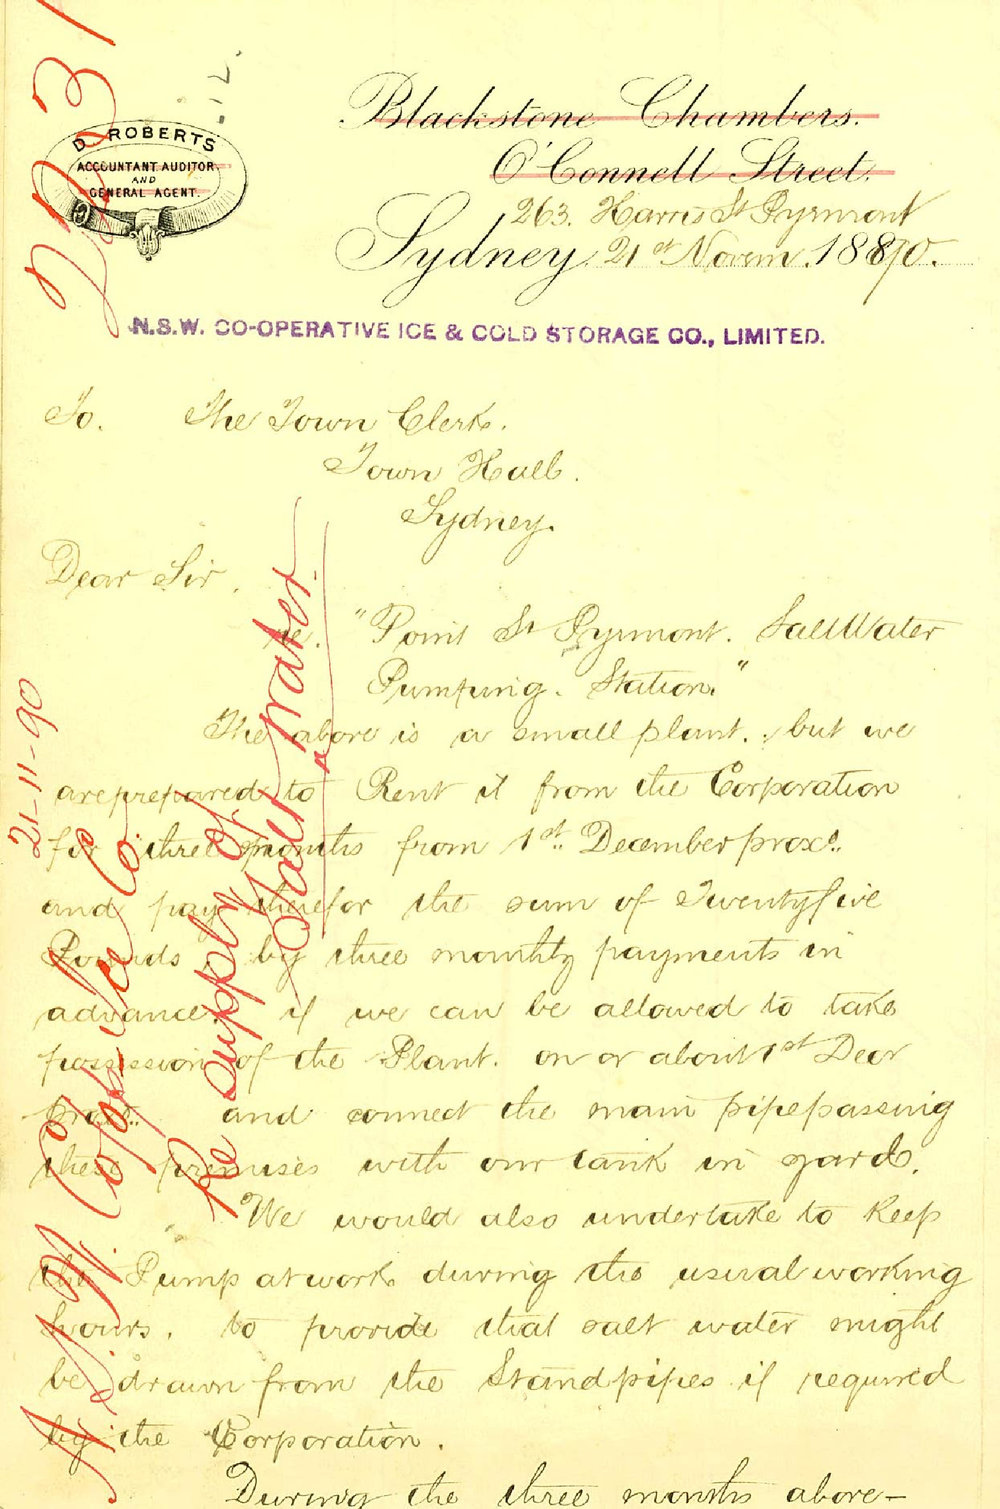 Blackstone Chambers.
D. ROBERTS
ACCOUNTANT. AUDITOR.
AND
GENERAL AGENT.
O'Connell Street.
263. Harris St Pyrmont
Sydney. 21st Novem. 1890.
N.S.W. CO-OPERATIVE ICE & COLD STORAGE CO., LIMITED.
To. The Town Clerk.
Town Hall.
Sydney.
Dear Sir.
re. "Point St Pyrmont. Salt Water
Pumping. Station."
The above is a small plant. but we
are prepared to Rent it from the Corporation
for three months from 1st. December proxo.
and pay therefor the sum of Twentyfive
Pounds, by three monthly payments in
advance. if we can be allowed to take
possession of the Plant. on or about 1st Decr
proxo. and connect the main pipe passing
these premises with our tank in yard.
We would also undertake to keep
the Pump at work during the usual working
hours. to provide that salt water might
be drawn from the Standpipes if required
by the Corporation.
During the three months above-
21-11-90
N.S.W. Coop. Ice Co
Re supply of
Salt water.